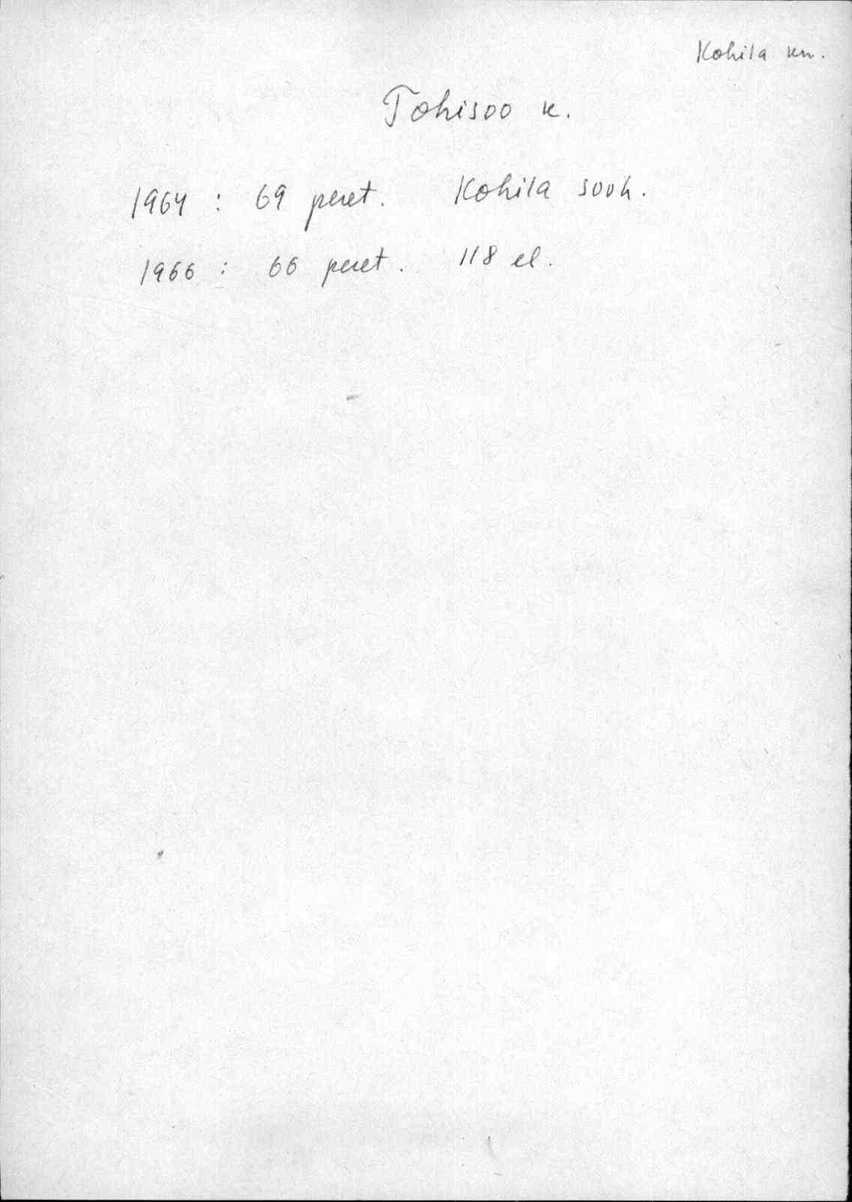 Kohila kn.
Tohisoo k.
1964 : 69 peret. Kohila sovh.
1966 : 66 peret. 118 el.